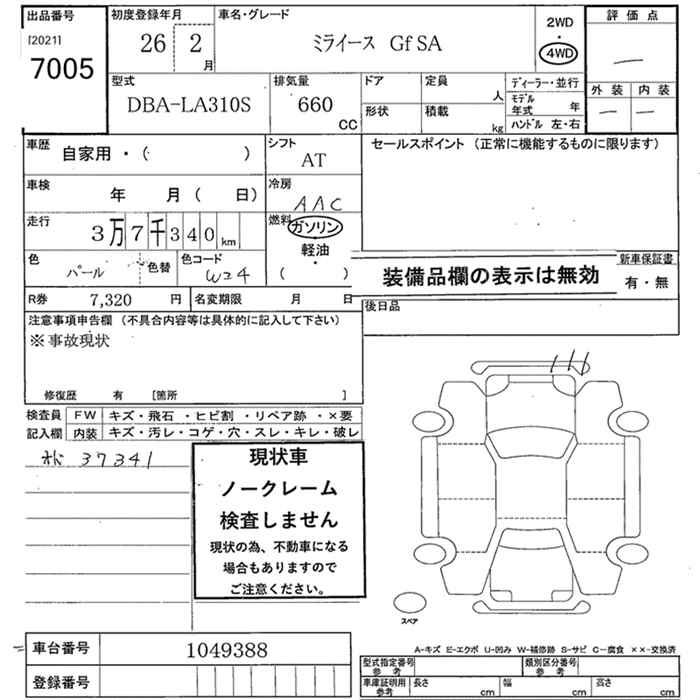 出品番号
[2021]
7005
初度登録年月
26 2
月
車名・グレード
ミライース Gf SA
2WD
4WD
評価点
—
外装 内装
— —
型式
DBA-LA310S
排気量
660
CC
ドア
形状
定員
人
積載
kg
ディーラー・並行
モデル
年式 年
ハンドル 左・右
車歴
自家用・( )
シフト
AT
セールスポイント (正常に機能するものに限ります)
車検
年 月( 日)
冷房
AAC
走行
3万7千340km
燃料
ガソリン
軽油・
( )
色
パール
色替
色コード
W24
装備品欄の表示は無効
新車保証書
有・無
R券 7,320 円
名変期限 月 日
後日品
注意事項申告欄 (不具合内容等は具体的に記入して下さい)
※事故現状
修復歴 有 [箇所 ]
検査員
記入欄
FW キズ・飛石・ヒビ割・リペア跡・×要
内装 キズ・汚レ・コゲ・穴・スレ・キレ・破レ
37341
現状車
ノークレーム
検査しません
現状の為、不動車になる
場合もありますので
ご注意ください。
スペア
A-キズ E-エクボ U-凹み W-補修跡 S-サビ C-腐食 ××-交換済
車台番号 1049388
登録番号
型式指定番号
参考
類別区分番号
参考
車庫証明用
参考
長さ cm
幅 cm
高さ cm